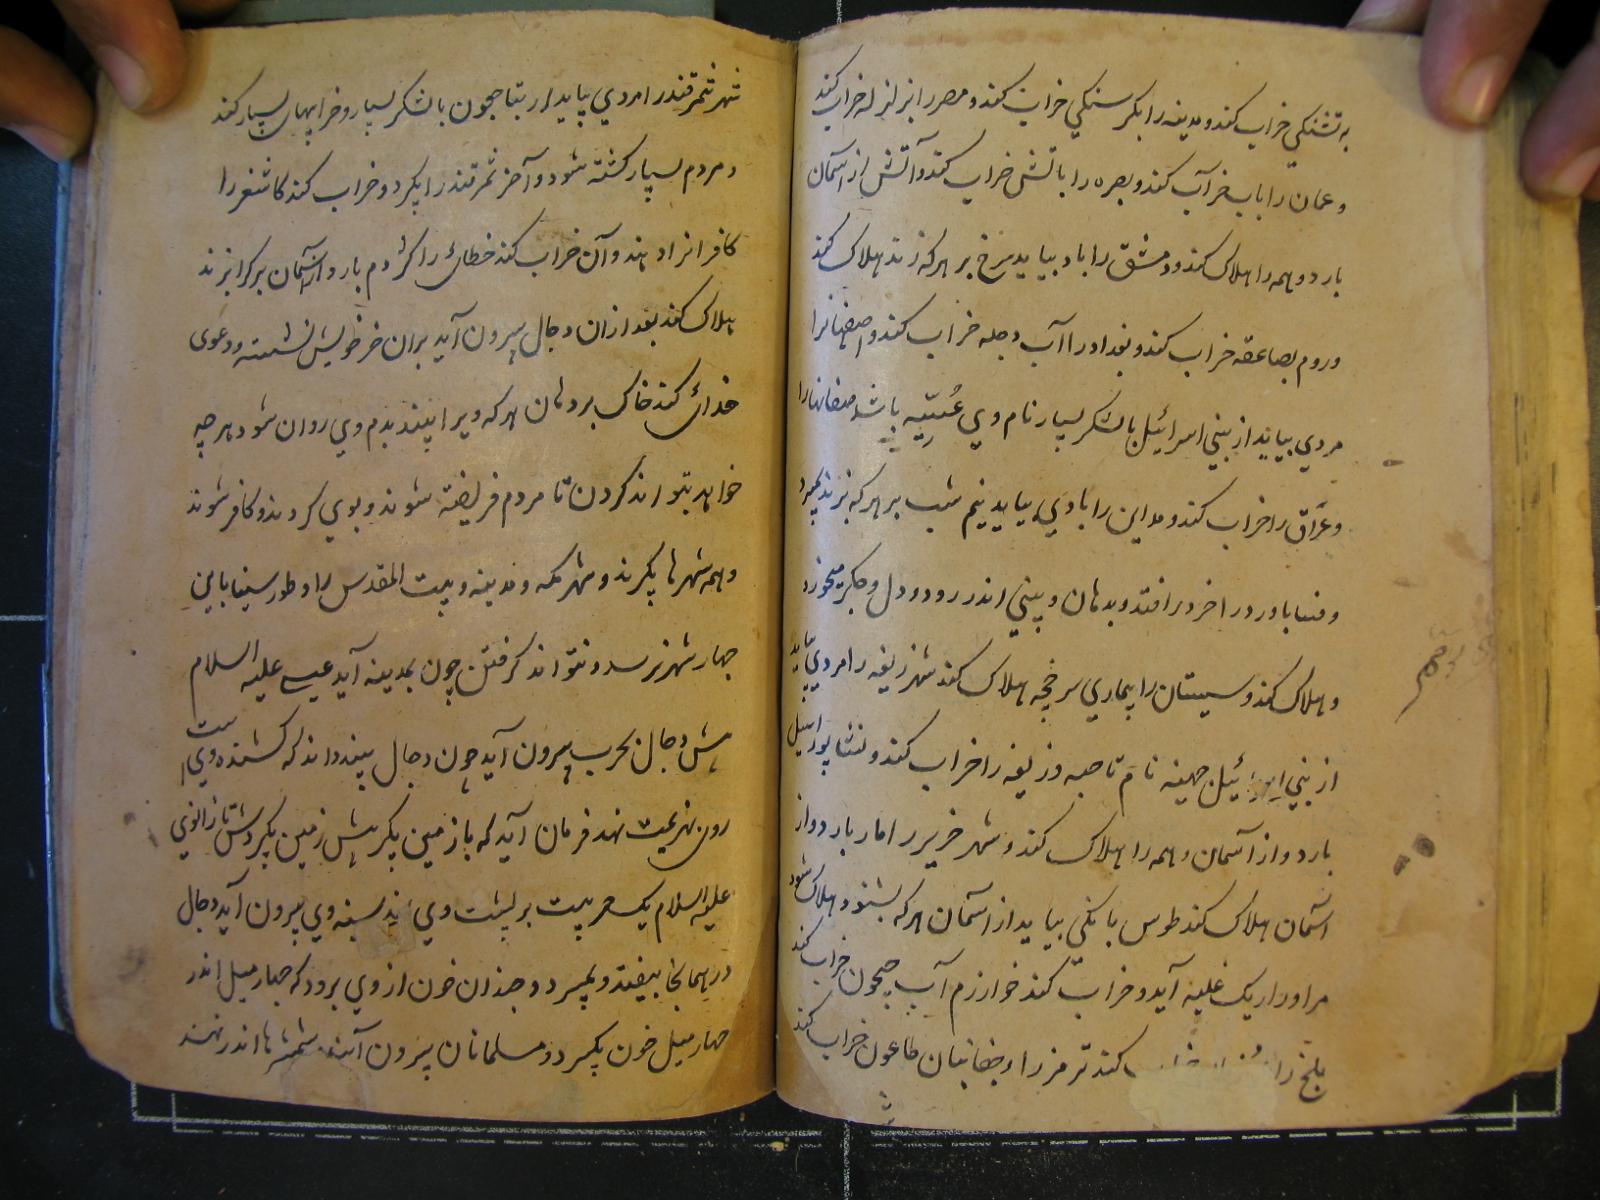 به تشنکي خراب کند و مدینه را بکرسنکي خراب کند و مصر را بزلزله خراب کند
و عمان را باب خراب کند و بصره را باتش خراب کند و آتش از آسمان
بارد و همه را هلاک کند و دمشق را باد بیاید سرخ بر هر که زند هلاک کند
و روم بصاعقه خراب کند و بغداد را آب دجله خراب کند و اصفهانرا
مردي بیاید از بني اسرائیل با لشکر بسیار نام وي باشد صفاهانرا
و عراق را خراب کند و مداین را بادي بیاید نیم شب بر هر که بزند بمیرد
و در آخر در افتد و بدهان و بیني اندر رود و دل و جکر میخورد
و هلاک کند و سیستان را بیماري سرخجه هلاک کند شهر زیغه را مردي بیاید
از بني اسرائیل جهینه نام تا حبه و زیغه را خراب کند و نشاپور
بارد و از آسمان و همه را هلاک کند و شهر را مار بارد و از
آسمان هلاک کند طوس بانکي بیاید از آسمان هر که بشنود هلاک شود
مرا و را ریک غلبه آید و خراب کند خوارزم آب جیحون خراب کند
بلخ را کند ترمز را و جغانیان طاعون خراب کند
شهر ثمرقند را مردي بیاید از بتاجیحون با لشکر بسیار و خرابیهای بسیار کند
و مردم بسیار کشته شود و آخر ثمرقند را بکیرد و خراب کند کاشغر را
کافرانراد هند و آن خراب کند خطای را کژدم بارد از آسمان بر که را بزند
هلاک کند بعد از آن دجال بیرون آید بران خر خویش نشسته و دعوی
خدائی کند خاک بر دهان هر که ویرا بیند بدم وي روان شود هر چه
خواهد بتواند کردن تا مردم فریفته شوند و بوي کردند و کافر شوند
و همه شهرها بکیرند و شهر مکه و مدینه و بیت المقدس را و طور سینا باین
چهار شهر نرسد و نتواند کرفتن چون بمدینه آید عیسی علیه السلام
پیش دجال بحرب بیرون آید چون دجال بیند داند که کشنده وي است
روي بهزیمت نهد فرمان آید که یا زمین بکیرش زمین بکیردش تا زانوي
علیه السلام یک حربت بر پشت وي زند بسینه وي بیرون آید و دجال
در همانجا بیفتد و بمیرد و چندان خون از وي برود که چهار میل اندر
چهار میل خون بکیرد و مسلمانان بیرون آیند شمشیرها اندر نهند